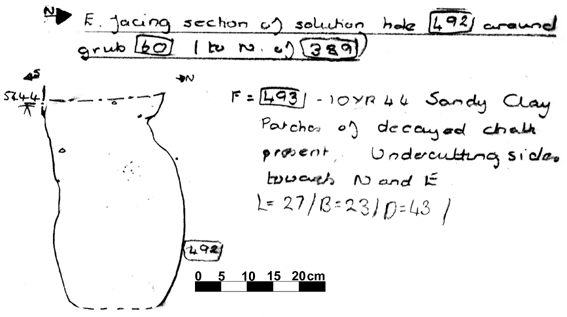 N E. facing section of solution hole 492 around
grub 60 / to N. of 389
S N
54.44
F = 493 - 10YR 44 Sandy Clay
Patches of decayed chalk
present. Undercutting sides
towards N and E
L= 27/B=23/D=43/
492
0 5 10 15 20cm